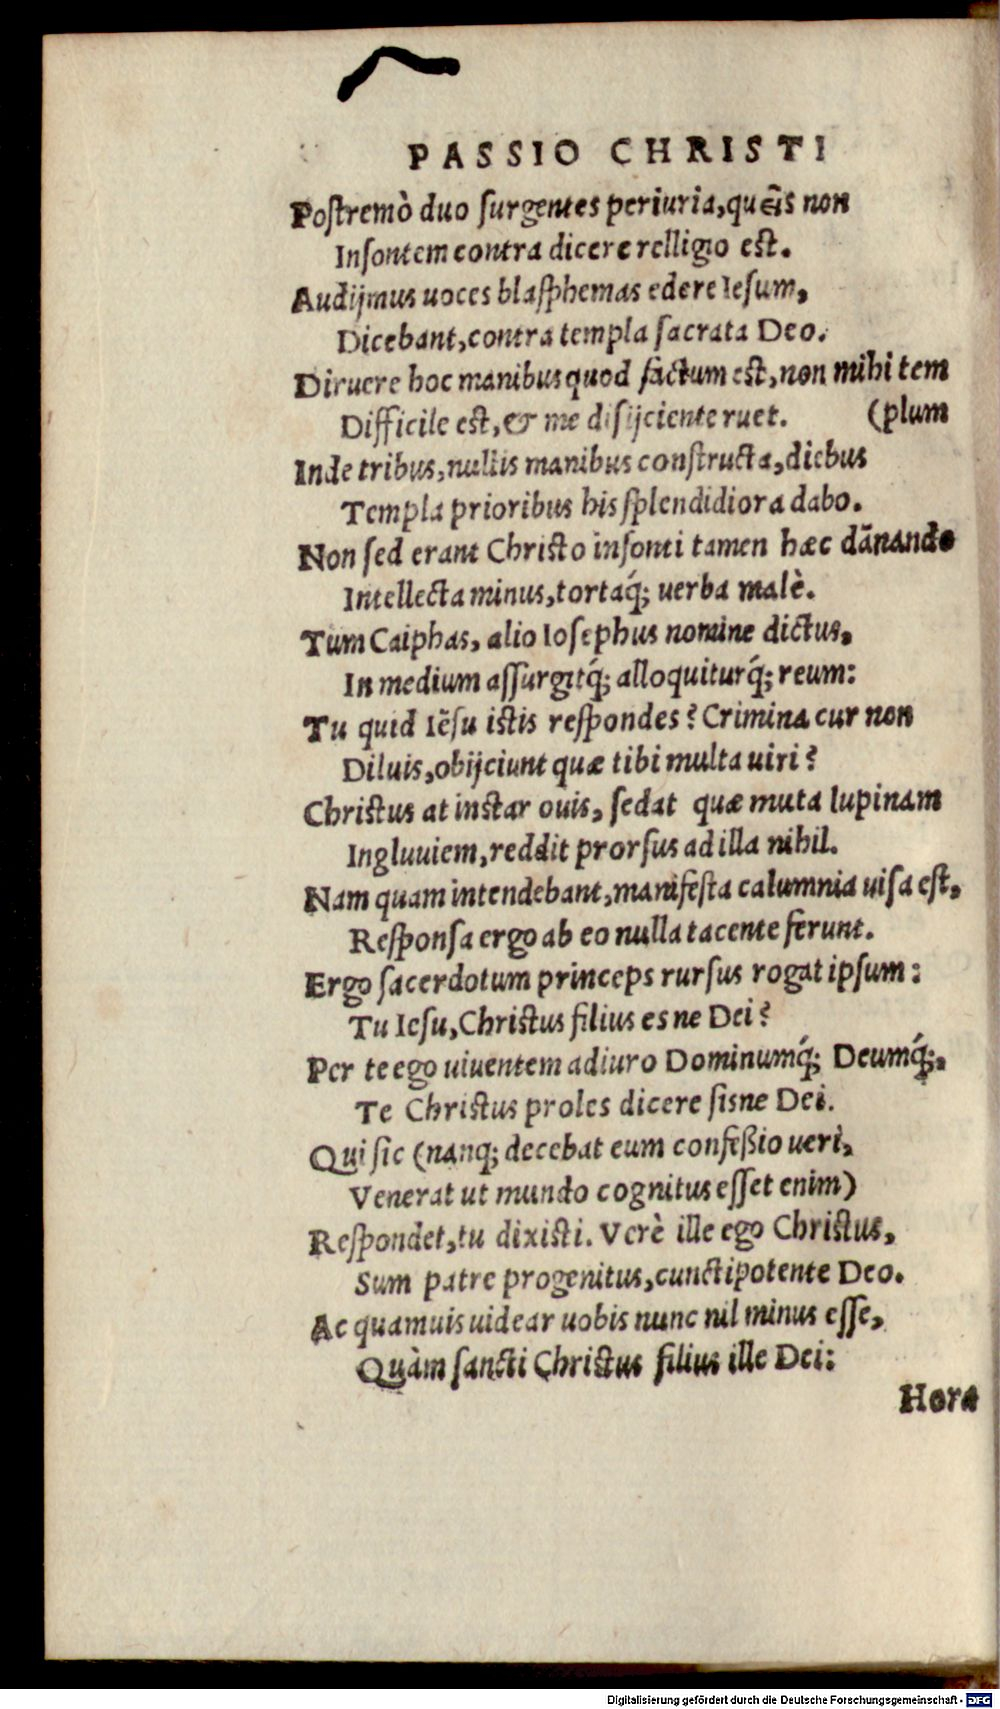 PASSIO CHRISTI
Postremò duo surgentes periuria, quẽis non
Insontem contra dicere relligio est.
Audijmus uoces blasphemas edere Iesum,
Dicebant, contra templa sacrata Deo.
Diruere hoc manibus quod factum est, non mihi tem
Difficile est, & me disijciente ruet. (plum
Inde tribus, nullis manibus constructa, diebus
Templa prioribus his splendidiora dabo.
Non sed erant Christo insonti tamen hæc dãnando
Intellecta minus, tortaq́; uerba malè.
Tum Caiphas, alio Iosephus nomine dictus,
In medium assurgitq́; alloquiturq́; reum:
Tu quid Iẽsu istis respondes? Crimina cur non
Diluis, obijciunt quæ tibi multa uiri?
Christus at instar ouis, sedat quæ muta lupinam
Ingluuiem, reddit prorsus ad illa nihil.
Nam quam intendebant, manifesta calumnia uisa est,
Responsa ergo ab eo nulla tacente ferunt.
Ergo sacerdotum princeps rursus rogat ipsum:
Tu Iesu, Christus filius es ne Dei?
Per te ego uiuentem adiuro Dominumq́; Deumq́;,
Te Christus proles dicere sisne Dei.
Qui sic (nanq; decebat eum confeßio ueri,
Venerat ut mundo cognitus esset enim)
Respondet, tu dixisti. Verè ille ego Christus,
Sum patre progenitus, cunctipotente Deo.
Ac quamuis uidear uobis nunc nil minus esse,
Quàm sancti Christus filius ille Dei:
Hora
Digitalisierung gefördert durch die Deutsche Forschungsgemeinschaft - DFG